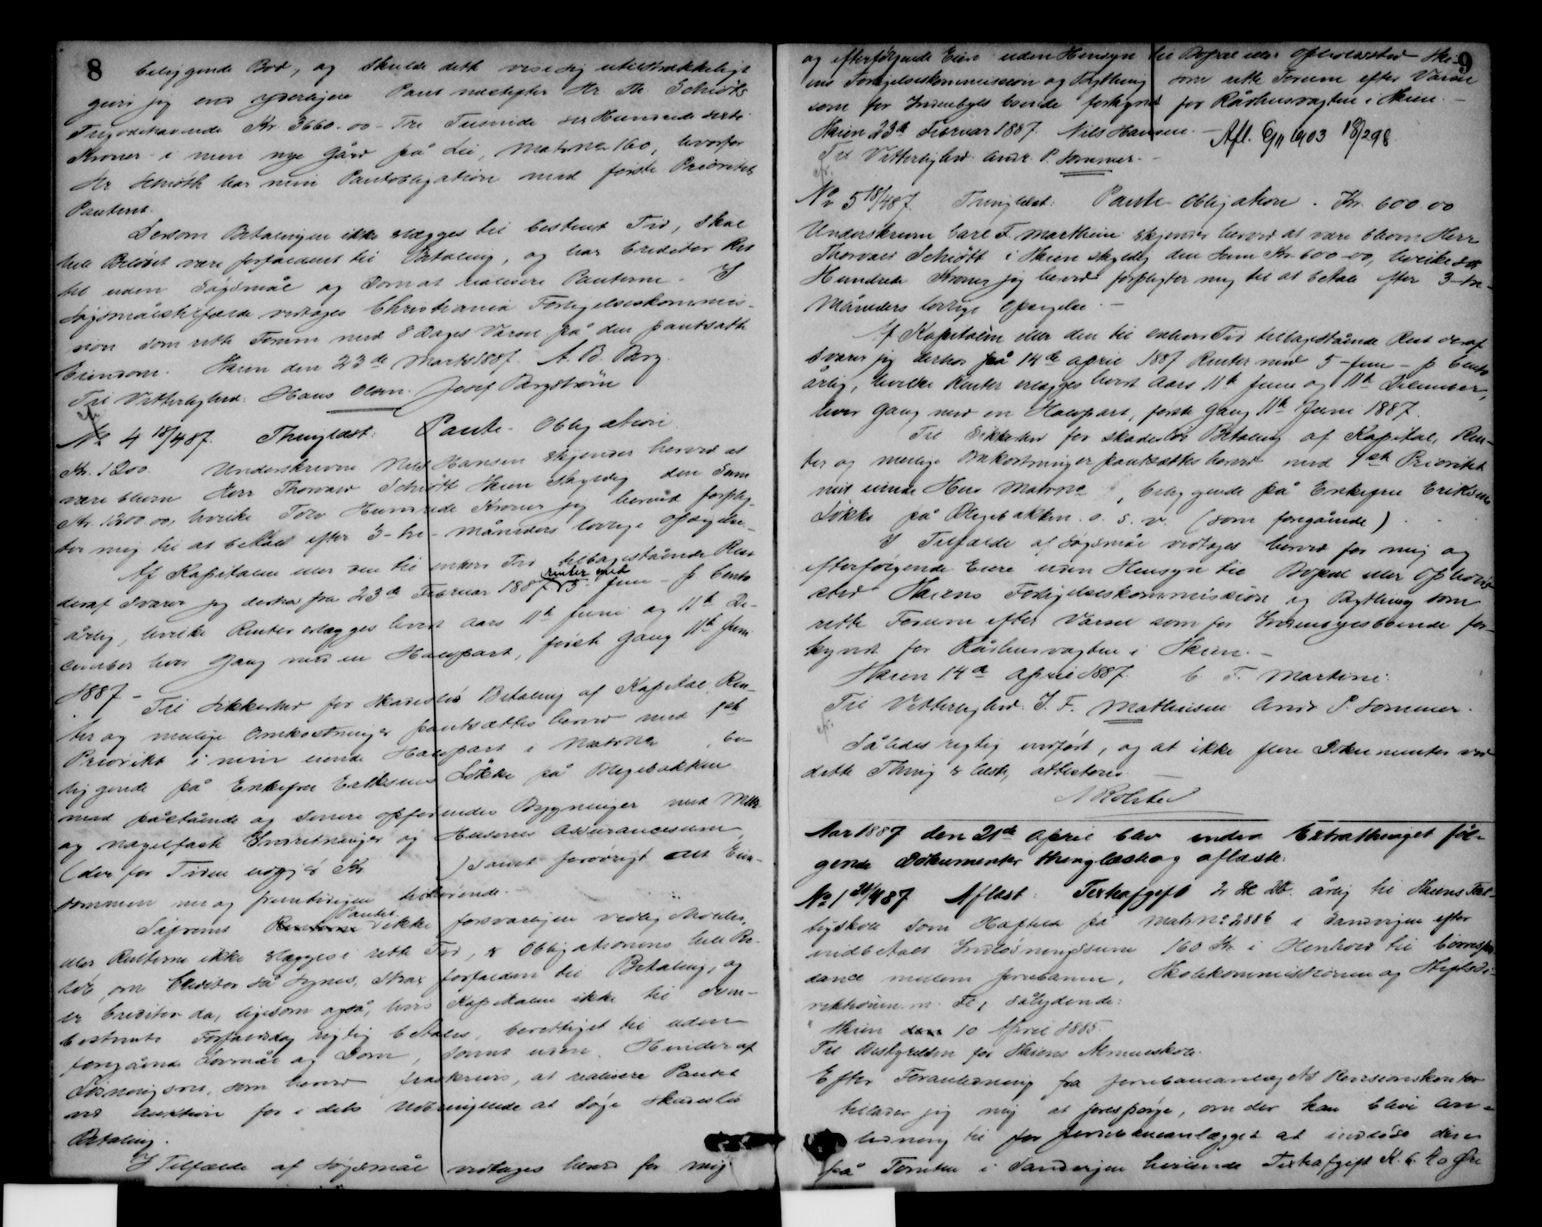 8
beliggende Bod, og skulde dette vise sig utilstrækkeligt
giver jeg end yderligere Pant næstefter Hr Th. Schiøtt
Tilgodehavende Kr. 3660.00 - Tre Tusinde sex Hundrede sexti
Kroner i min nye Gård på Lie, Matr No 160, hvorfor
Hr Schiøth har min Pantobligation med første Prioritets
Panteret.
Dersom Betalingen ikke erlægges til bestemt Tid, skal
hele Beløbet være forfaldent til Betaling, og har Creditor Ret
til uden Søgsmål og Dom at realisere Panterne. I
Søgsmålstilfælde vedtages Christiania Forligelseskommis-
sion som rette Forum med 8 Dages Varsel på den pantsatte
Eiendom. Skien den 23de Marts 1887. A. B. Berg.
Til Vitterlighed: Hans Olsen. Josef Bergstrøm
No 4 18/4 87. Thinglæst: Pante-Obligation
Kr. 1200. Underskrevne Nils Hansen skjender herved at
være bleven Herr Thorvald Schiøtt Skien skyldig den Sum
Kr. 1200.00, hvilke Tolv Hundrede Kroner jeg herved forplig-
ter mig til at betale efter 3-tre-måneders lovlige Opsigelse.
Af Kapitalen eller den til enhver Tid tilbagestående Rest
deraf svarer jeg derhos fra 23de Februar 1887 renter med 5-fem-p Cento
årlig, hvilke Renter erlægges hvert Aars 11te Juni og 11te De-
cember hver Gang med en Halvpart, første Gang 11te Juni
1887 - Til Sikkerhed for skadesløs Betaling af Kapital, Ren-
ter og mulige Omkostninger pantsættes herved med 1ste
Prioritet i min eiende Halvpart i Matr No , be-
liggende på Enkefru Eriksens Løkke på Blegebakken
med påstående og senere opførendes Bygninger med Mur
og nagelfaste Indretninger og Husenes Assurancesum,
(der for Tiden udgjør Kr ) samt forøvrigt alt Eien-
dommen nu og fremtidigen tilhørende.
Såfremt Renterne Pantet ikke forsvarligen vedligeholdes,
eller Renterne ikke erlægges i rette Tid, er Obligationens hele Be-
løb, om Creditor så synes, strax forfalden til Betaling, og
er Creditor da, ligesom også, hvis Kapitalen ikke til den
bestemte Forfaldsdag rigtig betales, berettiget til uden
foregående Lovmål og Dom, samt uden Hinder af
Løsningsret, som herved fraskrives, at realisere Pantet
ved Auktion for i dets Udbringende at søge skadesløs
Betaling.
I Tilfælde af Søgsmål vedtages herved for mig
9
og efterfølgende Eier uden Hensyn til Bopæl eller Opholdssted Ski-
ens Forligelseskommission og Bything som rette Forum efter Varsel
som for Indenbyes boende forkyndt for Rådhusvagten i Skien.
Skien 23de Februar 1887. Nils Hansen. - Afl. 6/11 1903 18/298
Til Vitterlighed: Andr. P. Sommer.
No 5 18/4 87. Thinglæst: Pante-Obligation. Kr. 600.00
Underskrevne Carl F. Marthini skjender herved at være bleven Herr
Thorvald Schiøtt i Skien skyldig den Sum Kr. 600.00, hvilke Sex
Hundrede Kroner jeg herved forpligter mig til at betale efter 3-tre-
Måneders lovlige Opsigelse.
Af Kapitalen eller den til enhver Tid tilbagestående Rest deraf
svarer jeg derhos på 14de April 1887 Renter med 5-fem-p Cento
årlig, hvilke Renter erlægges hvert Aars 11te Juni og 11te December,
hver Gang med en Halvpart, første Gang 11te Juni 1887.
Til Sikkerhed for skadesløs Betaling af Kapital, Ren-
ter og mulige Omkostninger pantsættes herved med 1ste Prioritet
mit eiende Hus Matr No , beliggende på Enkefru Eriksens
Løkke på Blegebakken o. s. v. (som foregående).
I Tilfælde af Søgsmål vedtages herved for mig og
efterfølgende Eiere uden Hensyn til Bopæl eller Opholds-
sted Skiens Forligelseskommission og Bything som
rette Forum efter Varsel som for Indenbyesboende for-
kyndt for Rådhusvagten i Skien.
Skien 14de April 1887. C. F. Martini.
Til Vitterlighed: J. F. Mathiesen Andr P. Sommer.
Således rigtig indført, og at ikke flere Dokumenter ved
dette Thing er læst, attesteres
Aar 1887 den 21de April blev under Extrathinget føl-
gende Dokumenter thinglæst og aflæst:
No 1 21/4 87 Aflæst: Texhafgift årlig til Skiens Fat-
tigskole som Hæftelse på Matr No 288b i Sandvigen efter
indbetalt Indløsningssum 160 Kr i Henhold til Correspon-
dance mellem Jernbanen, Skolekommissionen og Stiftsdi-
rektionen m. Fl., sålydende:
Skien den 10 April 1885.
Til Bestyrelsen for Skiens Almueskole.
Efter Foranledning fra Jernbaneanlægets Revisionskontor
tillader jeg mig at forespørge, om der kan blive An-
ledning til for Jernbaneanlægget at indløse den
på Tomten i Sandvigen hvilende Texhafgift K. 6. 40 Øre